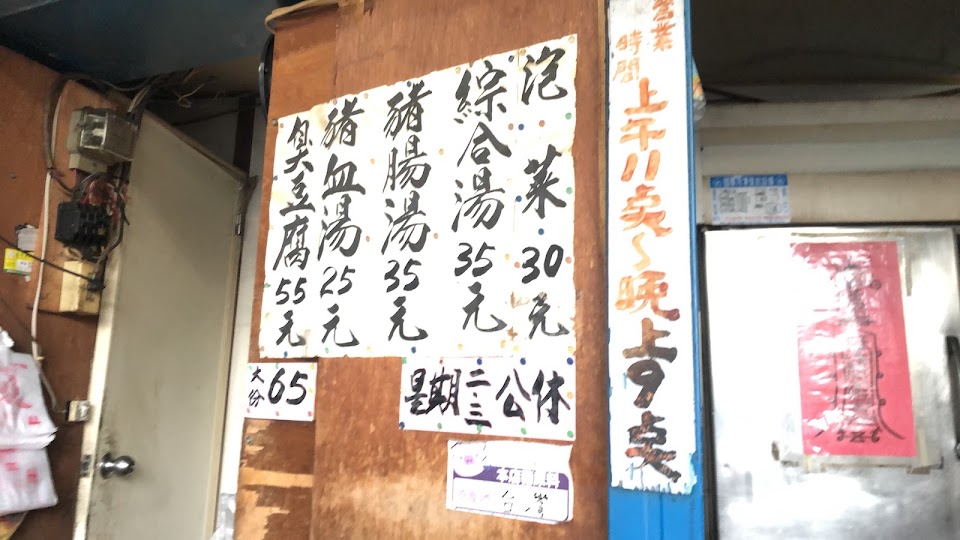 營業
時間
上午11點~晚上9點
泡菜30元
綜合湯35元
豬腸湯35元
豬血湯25元
臭豆腐55元
大份65
星期二.三公休